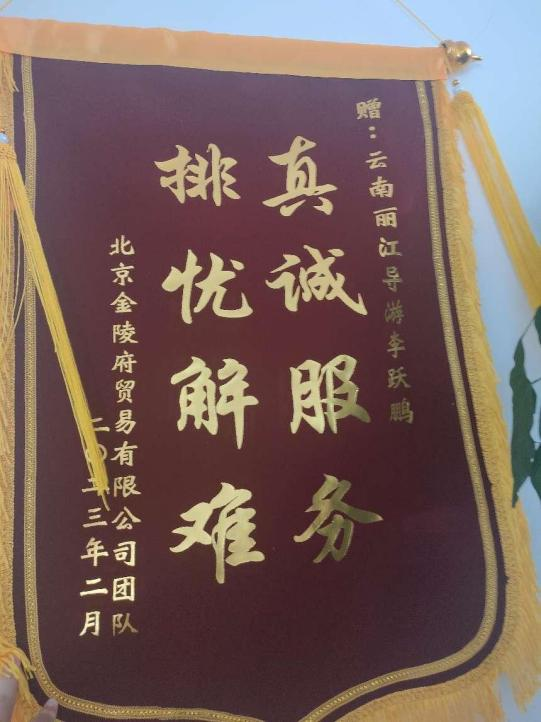 赠：云南丽江导游李跃鹏
真诚服务
排忧解难
北京金陵府贸易有限公司团队
二〇二三年二月